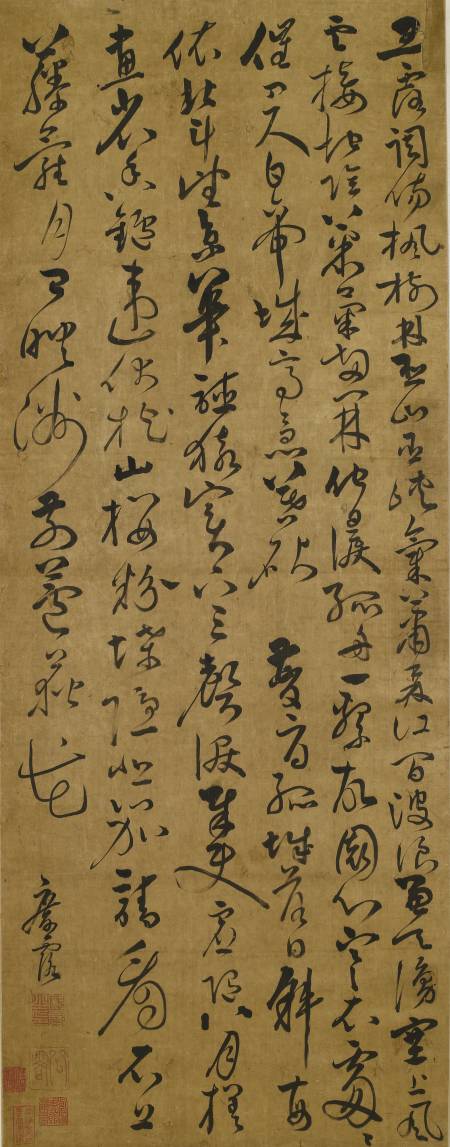 玉露凋傷楓樹林巫山巫峽氣蕭森江間波浪兼天湧塞上風
雲接地陰叢菊兩開他日淚孤舟一繫故園心寒衣處〻
催刀尺白帝城高急暮砧 夔府孤城落日斜每
依北斗望京華聽猿實下三聲淚奉使虛隨八月槎
畫省香鑪違伏枕山樓粉堞隱悲笳請看石上
藤蘿月已映洲前蘆荻花
鄺露